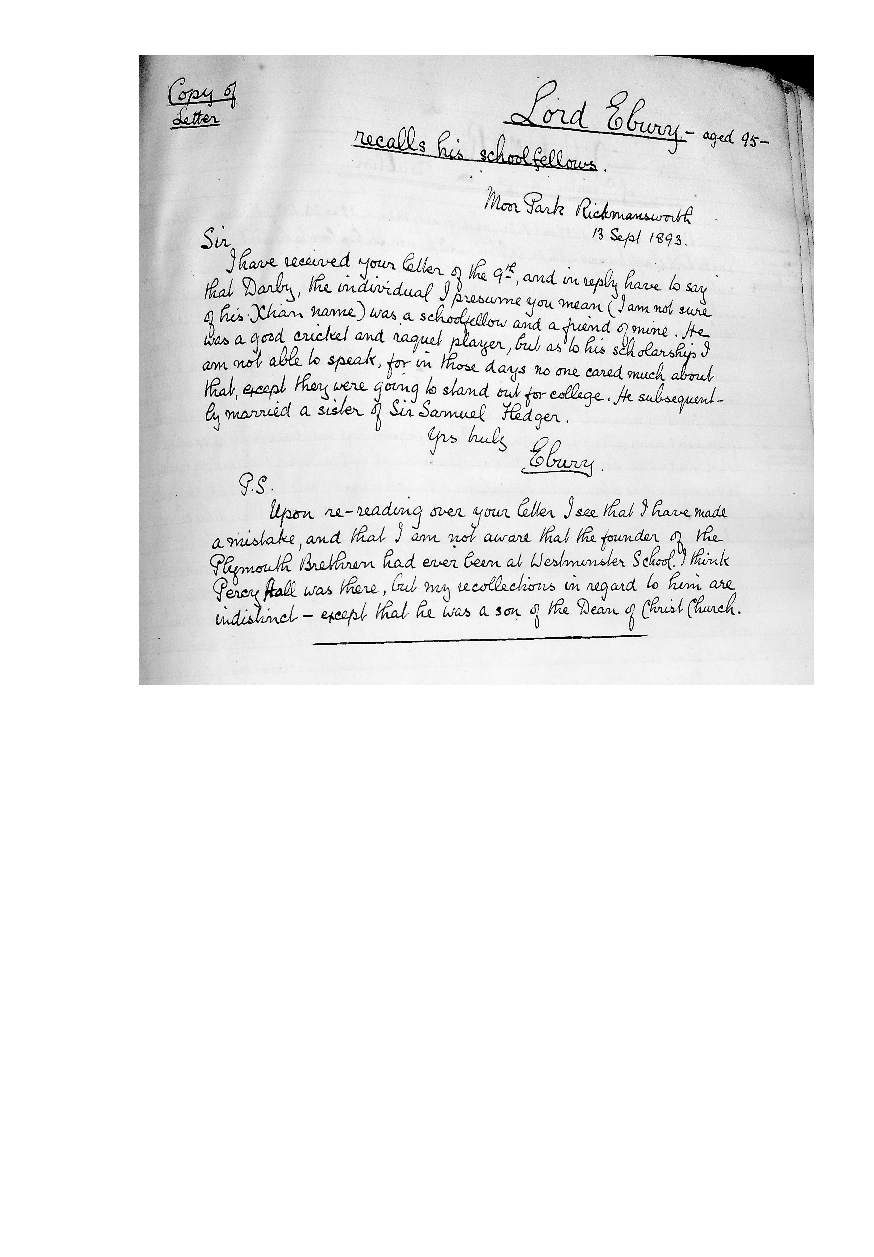 Copy of
Letter
Lord Ebury – aged 95 –
recalls his schoolfellows.
Moor Park Rickmansworth
13 Sept 1893.
Sir,
I have received your letter of the 9th, and in reply have to say
that Darby, the individual I presume you mean (I am not sure
of his Xtian name) was a schoolfellow and a friend of mine. He
was a good cricket and raquet player, but as to his scholarship I
am not able to speak, for in those days no one cared much about
that, except they were going to stand out for college. He subsequent-
ly married a sister of Sir Samuel Hedger.
Yrs truly
Ebury.
P.S.
Upon re-reading over your letter I see that I have made
a mistake, and that I am not aware that the founder of the
Plymouth Brethren had ever been at Westminster School. I think
Percy Hall was there, but my recollections in regard to him are
indistinct – except that he was a son of the Dean of Christ Church.